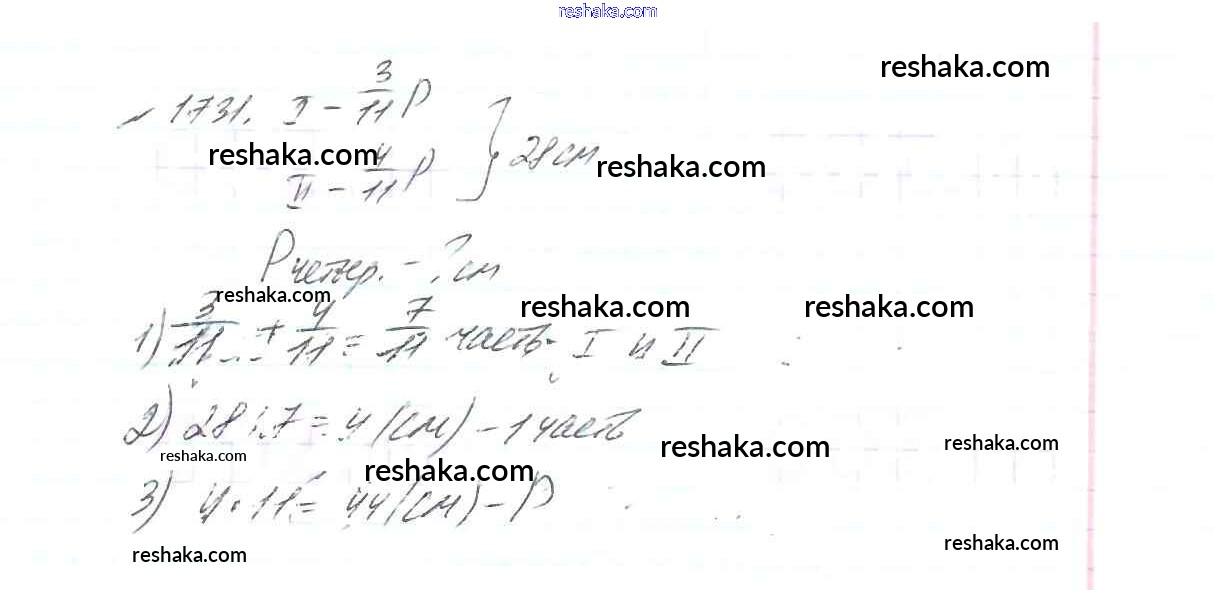 reshaka.com
reshaka.com
№1731. I - 3/11 P
reshaka.com
II - 4/11 P } 28 см
reshaka.com
P четыр. - ? см
reshaka.com
reshaka.com
reshaka.com
1) 3/11 + 4/11 = 7/11 часть - I и II
2) 28 : 7 = 4 (см) - 1 часть
reshaka.com
reshaka.com
reshaka.com
reshaka.com
3) 4 · 11 = 44 (см) - P
reshaka.com
reshaka.com